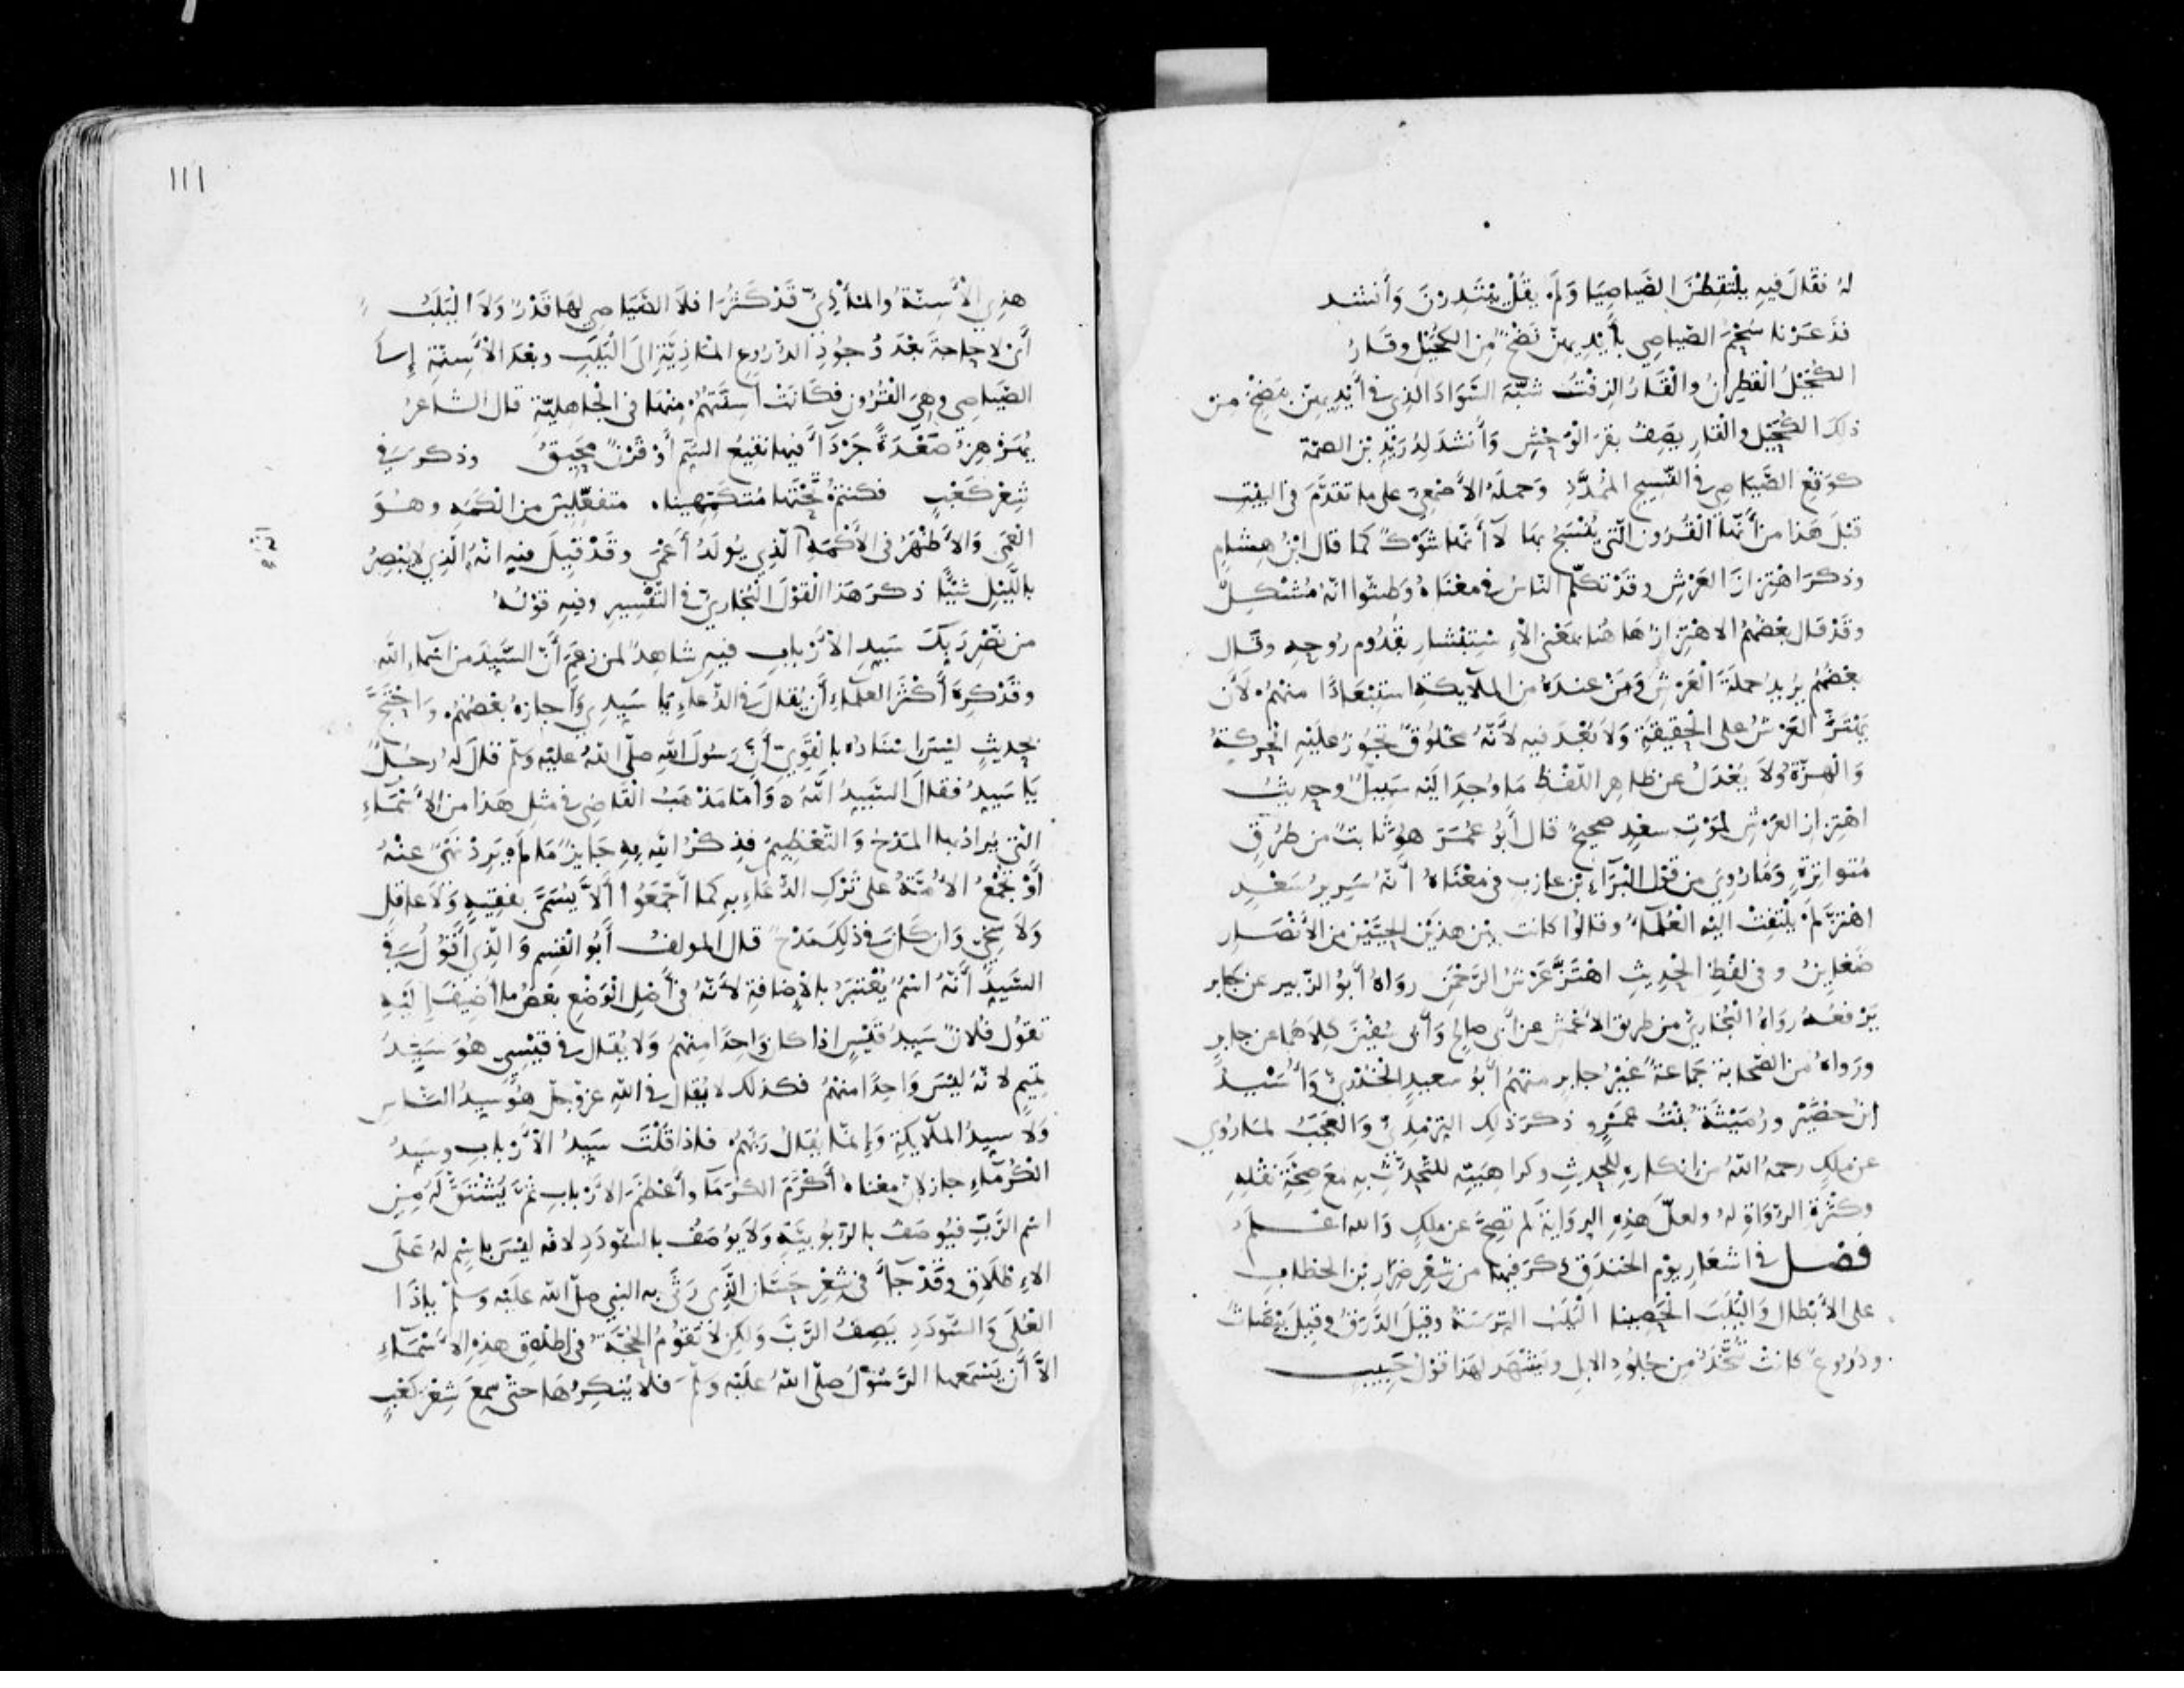 له نقال فيه يلتقطن الصياصيا ولم يقل يبتدرن وأنشد
فذعرنا سحم الصياصي بأيديهن نضح من الكحيل وقار
الكحيل القطران والقار الزفت شبه السواد الذي في أيديهن بنضح من
ذلك الكحيل والقار يصف بقر الوحش وأنشد لدريد بن الصمة
كوقع الصياصي في النسيج الممدد وحمله الأصمعي على ما تقدم في البيت
قبل هذا من أنها القرون التي ينسج بها لا أنها شوك كما قال ابن هشام
وذكر اهتزاز العرش وقد تكلم الناس في معناه وظنوا انه مشكل
وقد قال بعضهم الاهتزاز هاهنا بمعنى الاستبشار بقدوم روحه وقال
بعضهم يريد حملة العرش ومن عنده من الملايكة استبعادا منهم لان
يهتز العرش على الحقيقة ولا بعد فيه لأنه مخلوق تجوز عليه الحركة
والهزة ولا يعدل عن ظاهر اللفظ ما وجد اليه سبيل وحديث
اهتزاز العرش لموت سعد صحيح قال أبو عمر هو ثابت من طرق
متواترة وما روي من قول البراء بن عازب في معناه أنه سرير سعد
اهتز لم يلتفت اليه العلماء وقالوا كانت بين هذين الحيين من الأنصار
ضغاين وفي لفظ الحديث اهتز عرش الرحمن رواه أبو الزبير عن جابر
يرفعه رواه البخاري من طريق الاعمش عن أبي صالح وأبي سفين كلاهما عن جابر
ورواه من الصحابة جماعة غير جابر منهم أبو سعيد الخدري وأسيد
ابن حضير ورميثة بنت عمرو ذكر ذلك الترمذي والعجب لما روي
عن ملك رحمه الله من انكاره للحديث وكراهيته للتحدث به مع صحة نقله
وكثرة الرواة له ولعل هذه الرواية لم تصح عن ملك والله اعلم
فصل في اشعار يوم الخندق ذكر فيها من شعر ضرار بن الخطاب
على الأبطال واليلب الحصينا اليلب الترسة وقيل الدرق وقيل بيضات
ودروع كانت تتخذ من جلود الابل ويشهد لهذا قول حبيب
١١١
هذي الأسنة والماذي قد كثرا فلا الصياصي لها قدر ولا اليلب
أي لا حاجة بعد وجود الدروع الماذية إلى اليلب وبعد الأسنة إلى
الصياصي وهي القرون فكانت أسنتهم منها في الجاهلية قال الشاعر
يهزهز صعدة جرداء فيها نقيع السم أو قرن محيق وذكر في
شعر كعب فكنتم تحتها متكمهينا متفعلين من الكمه وهو
العمى والأظهر في الأكمه الذي يولد أعمى وقد قيل فيه انه الذي لا يبصر
بالليل شيئا ذكر هذا القول البخاري في التفسير وفيه قوله
من نصر ربك سيد الأرباب فيه شاهد لمن زعم أن السيد من اسماء الله
وقد كره أكثر العلماء أن يقال في الدعاء يا سيدي وأجازه بعضهم واحتج
بحديث ليس اسناده بالقوي أن رسول الله صلى الله عليه وسلم قال له رجل
يا سيد فقال السيد الله وأما مذهب القاضي في مثل هذا من الأسماء
التي يراد بها المدح والتعظيم فذكر الله به جايز ما لم يرد نهي عنه
أو تجمع الأمة على ترك الدعاء به كما أجمعوا ألا يسمى بفقيه ولا عاقل
ولا سخي وان كان في ذلك مدح قال المولف أبو القسم والذي أقول في
السيد أنه اسم يعتبر بالإضافة لأنه في أصل الوضع بعض ما أضيف إليه
تقول فلان سيد قيس اذا كان واحدا منهم ولا يقال في قيسي هو سيد
تميم لانه ليس واحدا منهم فكذلك لا يقال في الله عز وجل هو سيد الناس
ولا سيد الملايكة وإنما يقال ربهم فاذا قلت سيد الأرباب وسيد
الكرماء جاز لان معناه أكرم الكرما وأعظم الأرباب ثم يشتق له من
اسم الرب فيوصف بالربوبية ولا يوصف بالسودد لانه ليس باسم له على
الاطلاق وقد جاء في شعر حسان الذي رثى به النبي صلى الله عليه وسلم ياذا
العلى والسودد يصف الرب ولكن لا تقوم الحجة في إطلاق هذه الأسماء
الا أن يسمعها الرسول صلى الله عليه وسلم فلا ينكرها حتى سمع شعر كعب